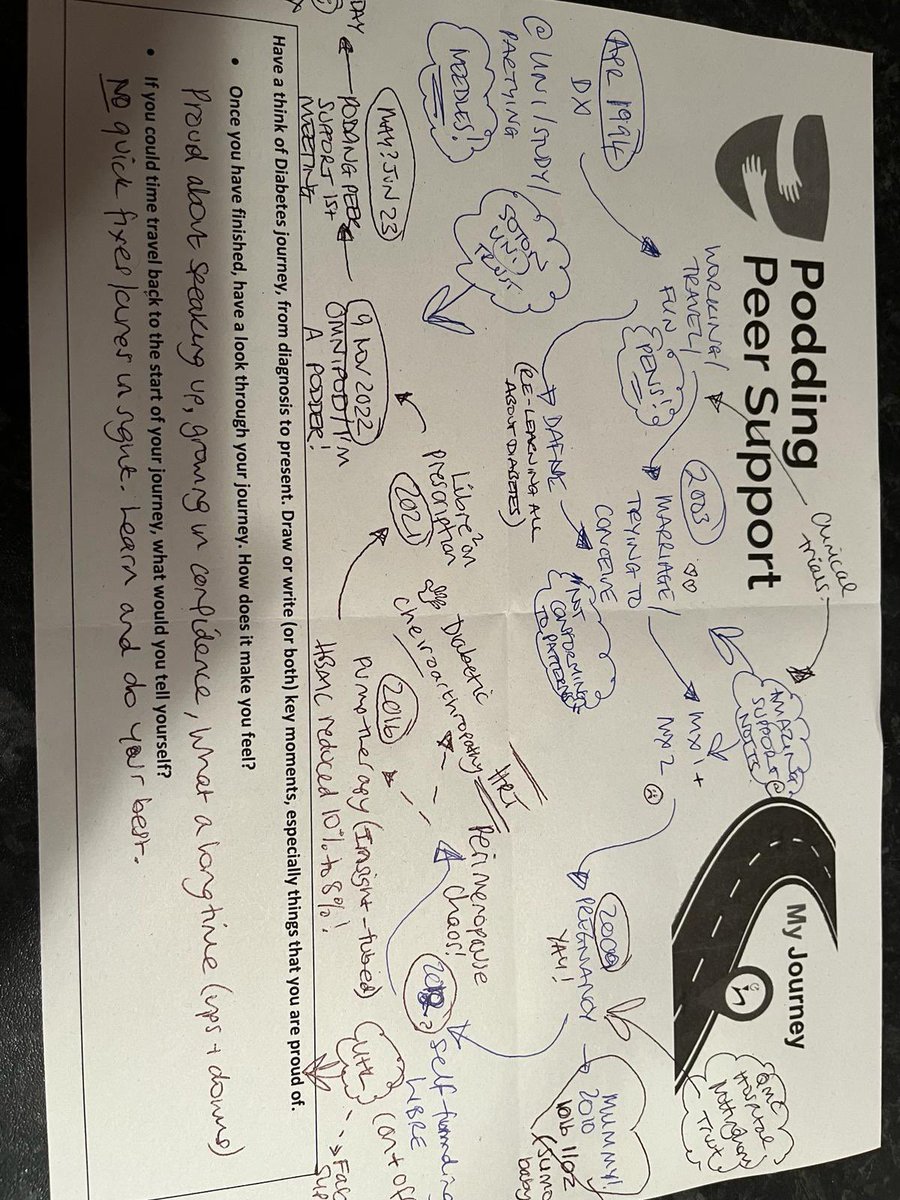 Podding
Peer Support
My Journey
Clinical
trials.
AMAZING
SUPPORT @
NOTTS
QMC
Hospital
Nottingham
Trust
APR 1994
DX
@ UNI / STUDY /
PARTYING
NEEDLES!
SOTON
UNI
TRUST
WORKING/
TRAVEL/
FUN
PENS!
2003
MARRIAGE/
TRYING TO
CONCEIVE
MX 1 +
MX 2
2009
PREGNANCY
YAY!
MUMMY!
2010
10lb 11oz
(SUMO
baby
DAFNE
(RE-LEARNING ALL
ABOUT DIABETES)
NOT
CONFORMING
TO PATTERN
Self-funding
LIBRE
HRT
Perimenopause
chaos!
Diabetic
cheiroarthropathy
Libre² on
prescription
2021
2016
pump therapy (Insight-tubed)
HBA1C reduced 10% to 8%!
(ont off
9 NOV 2022
OMNIPOD/I'M
A PODDER!
MAY?JUN 23
PODDING PEER
SUPPORT 1ST
MEETING
DAY
Have a think of Diabetes journey, from diagnosis to present. Draw or write (or both) key moments, especially things that you are proud of.
• Once you have finished, have a look through your journey. How does it make you feel?
Proud about speaking up, growing in confidence, what a long time (ups + downs)
• If you could time travel back to the start of your journey, what would you tell yourself?
NO quick fixes/cures in sight. Learn and do your best.